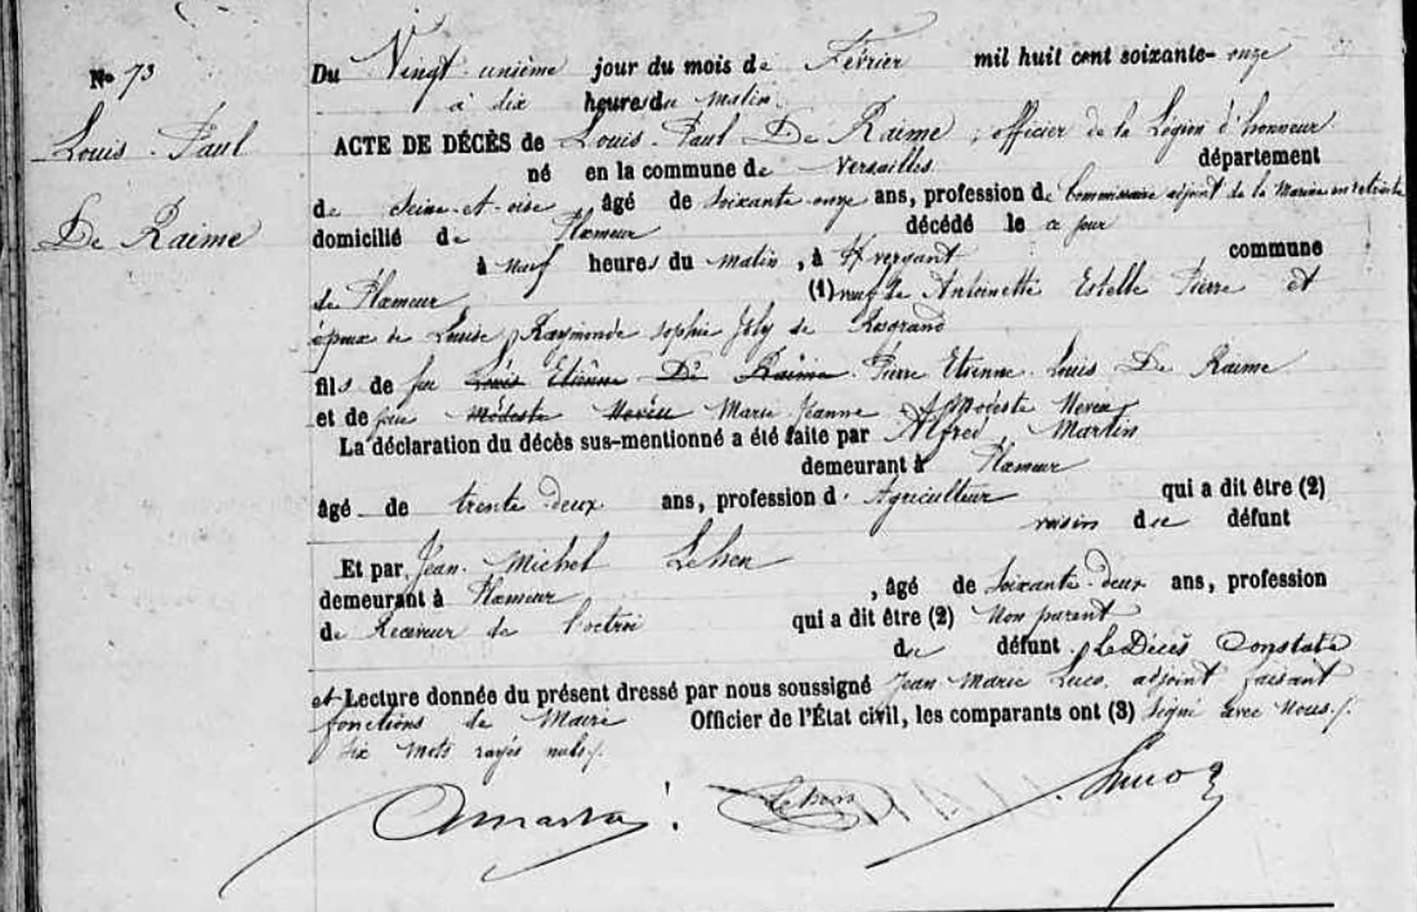 No 73
Louis Paul
De Raime
Du Vingt unième jour du mois de Février mil huit cent soixante-onze
à dix heures du matin.
ACTE DE DÉCÈS de Louis Paul De Raime, officier de la Légion d'honneur
né en la commune de Versailles département
de Seine-et-oise âgé de soixante onze ans, profession de Commissaire adjoint de la Marine en retraite
domicilié de Plœmeur décédé le ce jour
à neuf heures du matin, à commune
de Plœmeur (1) veuf de Antoinette Estelle Pierre et
époux de Louise Raymonde Sophie Joly de Rosgrand
fils de feu Louis Etienne De Raime Pierre Etienne Louis De Raime
et de feue Modeste Neveu Marie Jeanne Modeste Neveu
La déclaration du décès sus-mentionné a été faite par Alfred Martin
demeurant à Plœmeur
âgé de trente deux ans, profession d'Agriculteur qui a dit être (2)
voisin du défunt
Et par Jean Michel Lehen
demeurant à Plœmeur, âgé de soixante-deux ans, profession
de Receveur de l'octroi qui a dit être (2) Non parent
du défunt. Le Décès Constaté
et Lecture donnée du présent dressé par nous soussigné Jean Marie Luco, adjoint faisant
fonctions de Maire Officier de l'État civil, les comparants ont (3) signé avec Nous./.
Six mots rayés nuls./.
Amartin
Lehen
Luco